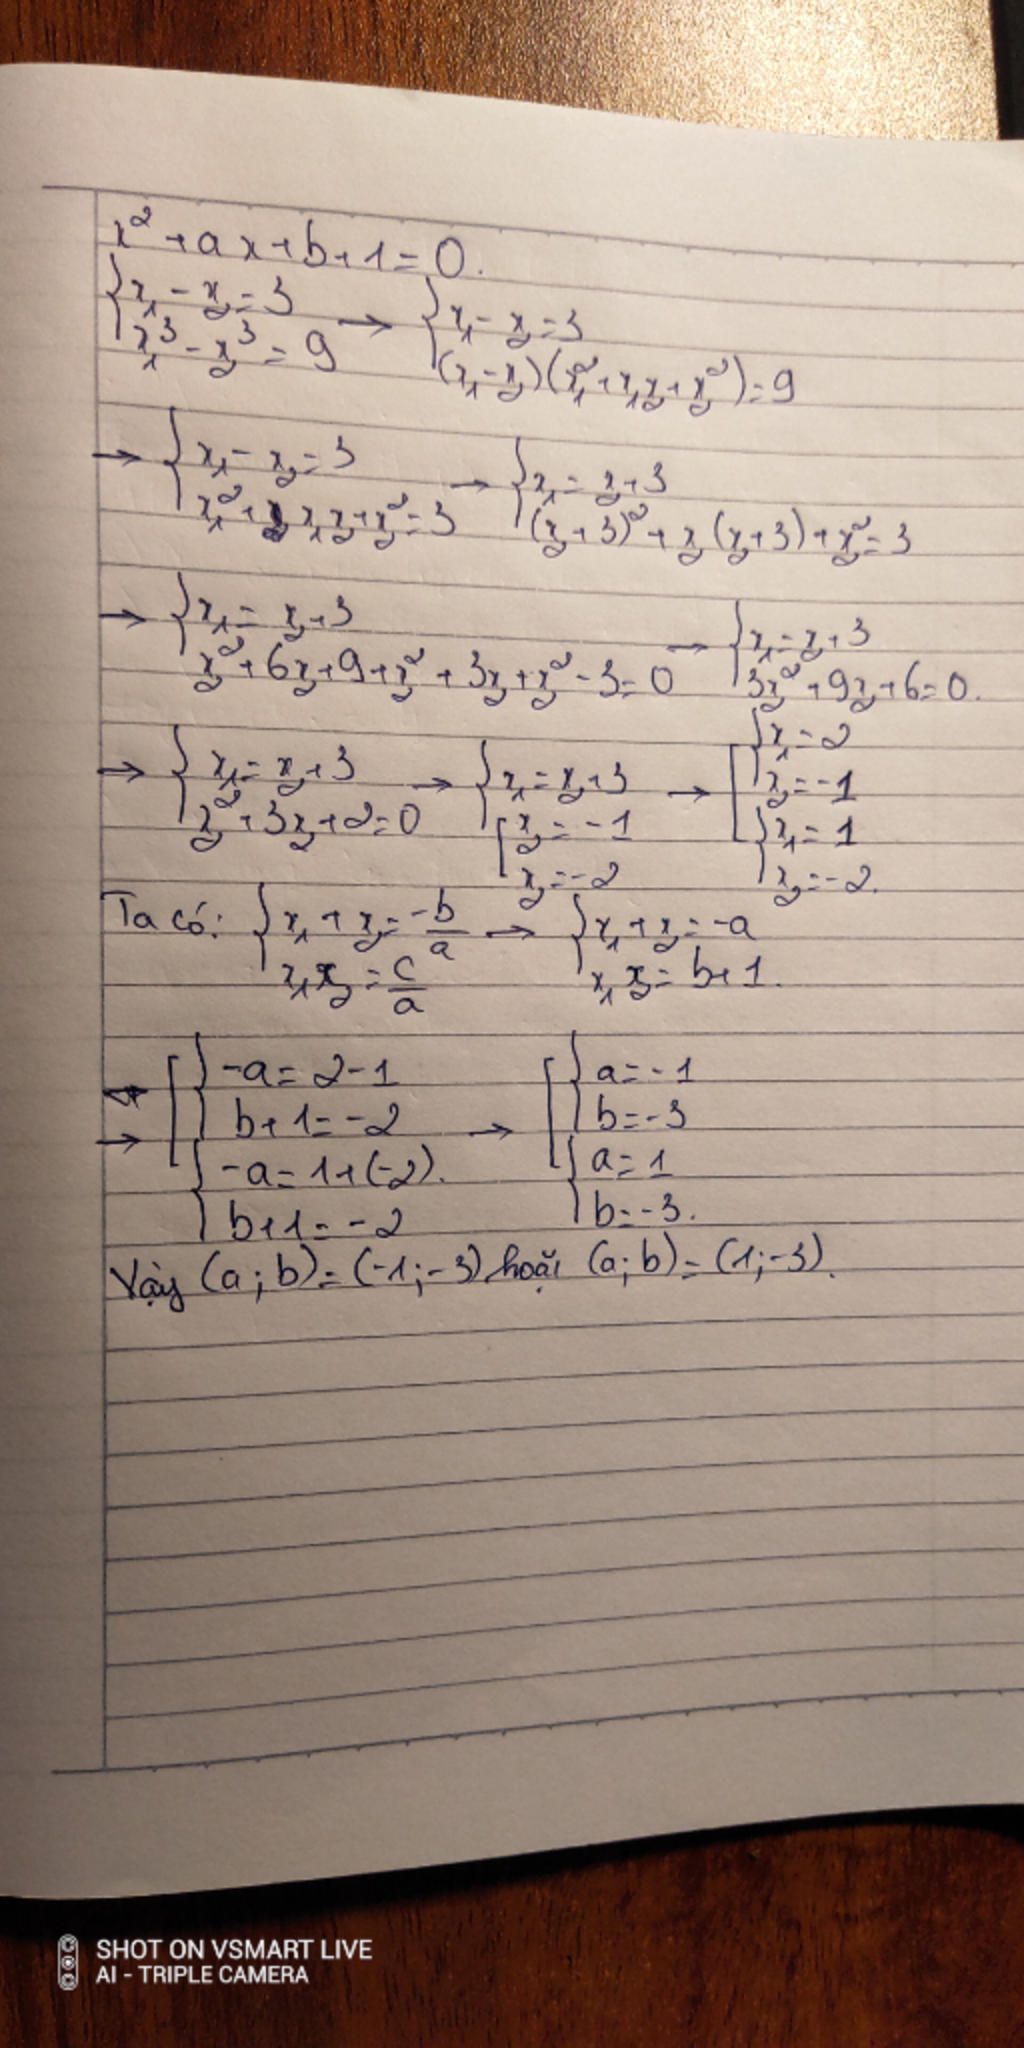 x² + ax + b + 1 = 0.
{ x₁ - x₂ = 3 → { x₁ - x₂ = 3
x₁³ - x₂³ = 9 (x₁ - x₂)(x₁² + x₁x₂ + x₂²) = 9
→ { x₁ - x₂ = 3 → { x₁ = x₂ + 3
x₁² + x₁x₂ + x₂² = 3 (x₂ + 3)² + x₂(x₂ + 3) + x₂² = 3
→ { x₁ = x₂ + 3 → { x₁ = x₂ + 3
x₂² + 6x₂ + 9 + x₂² + 3x₂ + x₂² - 3 = 0 3x₂² + 9x₂ + 6 = 0.
→ { x₁ = x₂ + 3 → { x₁ = x₂ + 3 → [ { x₁ = 2
x₂² + 3x₂ + 2 = 0 [ x₂ = -1 x₂ = -1
x₂ = -2 { x₁ = 1
x₂ = -2.
Ta có: { x₁ + x₂ = -b/a → { x₁ + x₂ = -a
x₁x₂ = c/a x₁x₂ = b + 1.
→ [ { -a = 2 - 1 → [ { a = -1
b + 1 = -2 b = -3
{ -a = 1 + (-2). { a = 1
b + 1 = -2 b = -3.
Vậy (a; b) = (-1; -3) hoặc (a; b) = (1; -3).
SHOT ON VSMART LIVE
AI - TRIPLE CAMERA